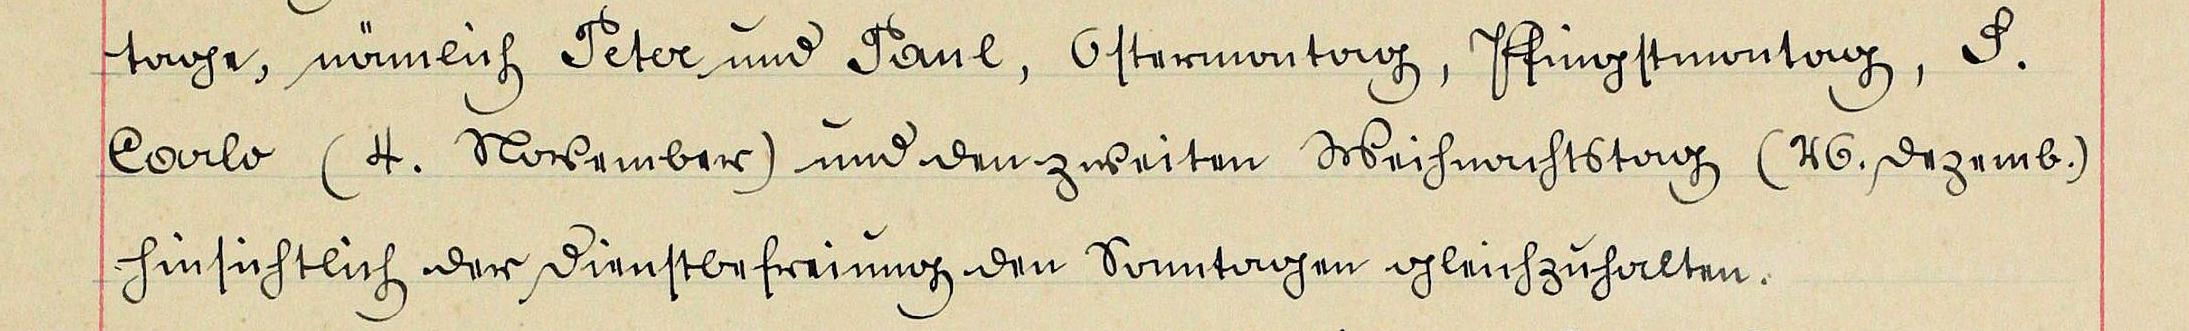 tage, nämlich Peter und Paul, Ostermontag, Pfingstmontag, S.
Carlo (4. November) und den zweiten Weihnachtstag (26. Dezemb.)
hinsichtlich der Dienstbefreiung den Sonntagen gleichzuhalten.